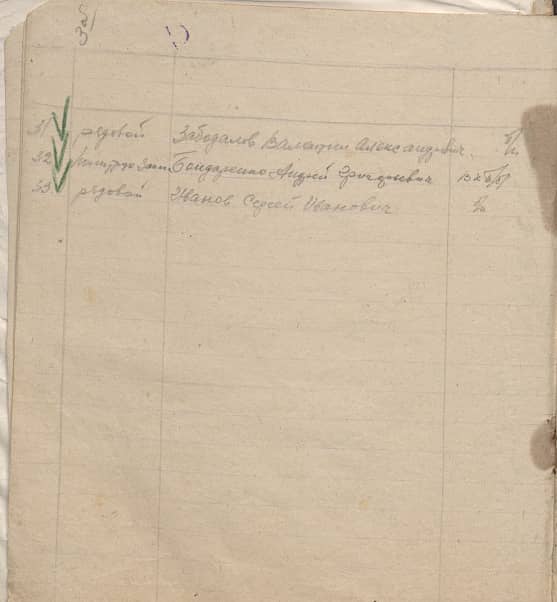 За
31 рядовой Забодалов Валентин Александрович б/п
32 Бондаренко Андрей Григорьевич ВКП(б)
33 рядовой Иванов Сергей Иванович б/п